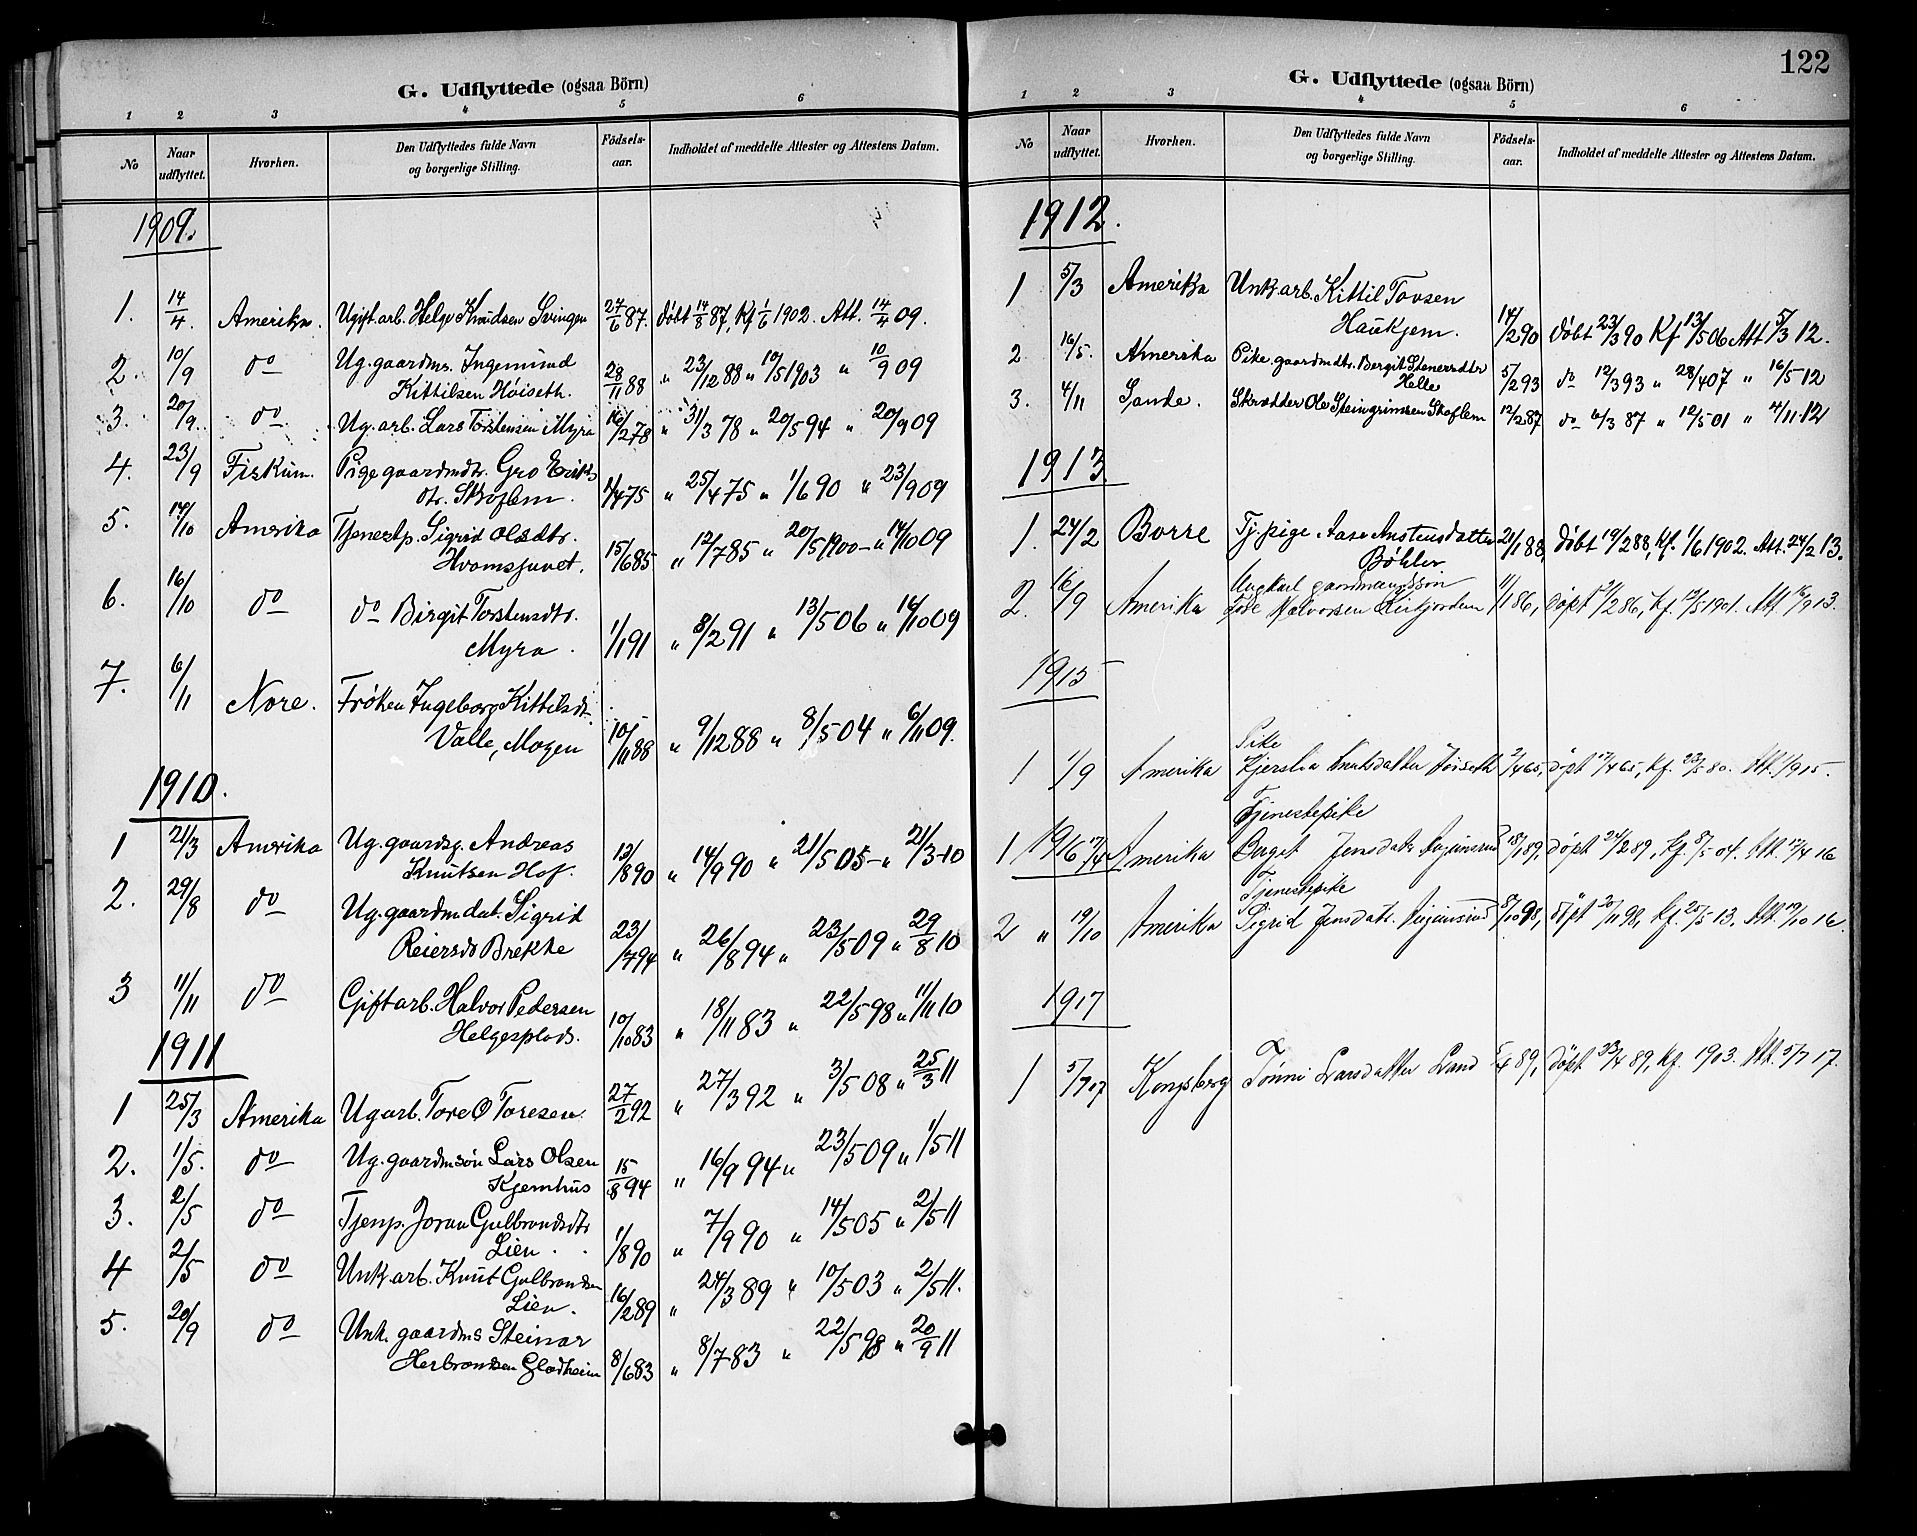 G. Udflyttede (ogsaa Börn)
1 2 3 4 5 6
No Naar udflyttet. Hvorhen. Den Udflyttedes fulde Navn og borgerlige Stilling. Födsels-aar. Indholdet af meddelte Attester og Attestens Datum.
1909.
1. 14/4. Amerika. Ugift. arb. Helge Knudsen Svingen 27/6 87. Døbt 14/8 87, Kf 1/6 1902. Att. 14/4 09.
2. 10/9 do Ug. gaardms. Ingemund
Kittilsen Høiseth. 28/11 88 " 23/12 88 " 10/5 1903 " 10/9 09
3. 20/9. do Ug. arb. Lars Torstensen Myra 16/2 78 " 31/3 78 " 20/5 94 " 20/9 09
4. 23/9 Fiskum. Pige gaardmdtr. Gro Eriks
dtr. Skoflem. 1/4 75 " 25/4 75 " 1/6 90 " 23/9 09
5. 14/10 Amerika Tjenestp. Sigrid Olsdtr.
Hvomsjuvet. 15/6 85 " 12/7 85 " 20/5 1900 - " 14/10 09
6. 16/10 do do Birgit Torstensdtr.
Myra. 1/1 91 " 8/2 91 " 13/5 06 " 16/10 09
7. 6/11 Nore. Frøken Ingeborg Kittilsdt.
Valle, Mogen 10/11 88 " 9/12 88 " 8/5 04 " 6/11 09.
1910.
1 21/3 Amerika Ug. gaardsg. Andreas
Knutsen Hof. 13/8 90 " 14/9 90 " 21/5 05 - " 21/3 10
2. 29/8 do Ug. gaardmdat. Sigrid
Reiersd Brekke 23/7 94 " 26/8 94 " 23/5 09 " 29/8 10
3 11/11 do Gift arb. Halvor Pedersen
Helgesplads. 10/10 83 " 18/11 83 " 22/5 98 " 11/11 10
1911
1 25/3 Amerika Ug arb. Tore O Toresen 27/2 92 " 27/3 92 " 3/5 08 " 25/3 11
2. 1/5. do Ug. gaardmsøn Lars Olsen
Kjemhus 15/8 94 " 16/9 94 " 23/5 09 " 1/5 11
3. 2/5 do Tjenp. Joran Gulbrandsdtr
Lien. 1/8 90 " 7/9 90 " 14/5 05 " 2/5 11
4 2/5 do Unk. arb. Knut Gulbrandsen
Lien. 16/2 89 " 24/3 89 " 10/5 03 " 2/5 11.
5. 20/9 do Unk. gaardms Steinar
Herbrandsen Gladheim 8/6 83 " 8/7 83 " 22/5 98 " 20/9 11
122
G. Udflyttede (ogsaa Börn)
1 2 3 4 5 6
No Naar udflyttet. Hvorhen. Den Udflyttedes fulde Navn og borgerlige Stilling. Födsels-aar. Indholdet af meddelte Attester og Attestens Datum.
1912.
1 5/3 Amerika Unk. arb. Kittil Tovsen
Haukjem. 14/2 90 Døbt 23/3 90 Kf 13/5 06 Att 5/3 12.
2 16/5. Amerika Pike gaardmdtr. Bergit Stenersdtr
Helle 5/2 93 do 12/3 93 " 28/4 07 " 16/5 12
3. 4/11 Sande. Skrædder Ole Steingrimsen Skoflem 12/2 87 do 6/3 87 " 12/5 01 " 4/11 12
1913
1. 24/2 Borre Tj. pige. Aase Anstensdatter
Bøhler 21/1 88, Døbt 19/2 88, Kf. 1/6 1902. Att. 24/2 13.
2. 16/9 Amerika Ungkarl gaardmandssøn
Halvorsen 11/1 86, døpt 21/2 86, Kf. 12/5 1901. Att. 16/9 13.
1915
1 1/9 Amerika Pike
Kjersti Knutsdatter Høiseth 2/4 65, døpt 17/4 65, Kf. 23/5 80. Att. 1/9 15.
1 1916 17/4 Amerika Tjenestepike
Berget Jensdatr. 18/1 89, døpt 24/2 89, Kf. 8/5 04. Att. 17/4 16
2 " 19/10 Amerika Tjenestepike
Sigrid Jensdatr. 8/10 98, døpt 20/11 98, Kf. 25/5 13. Att. 19/10 16.
1917
1 5/7 17 Kongsberg Tønni Larsdatter Land 5/4 89, døpt 23/4 89, Kf. 1903. Att. 5/7 17.